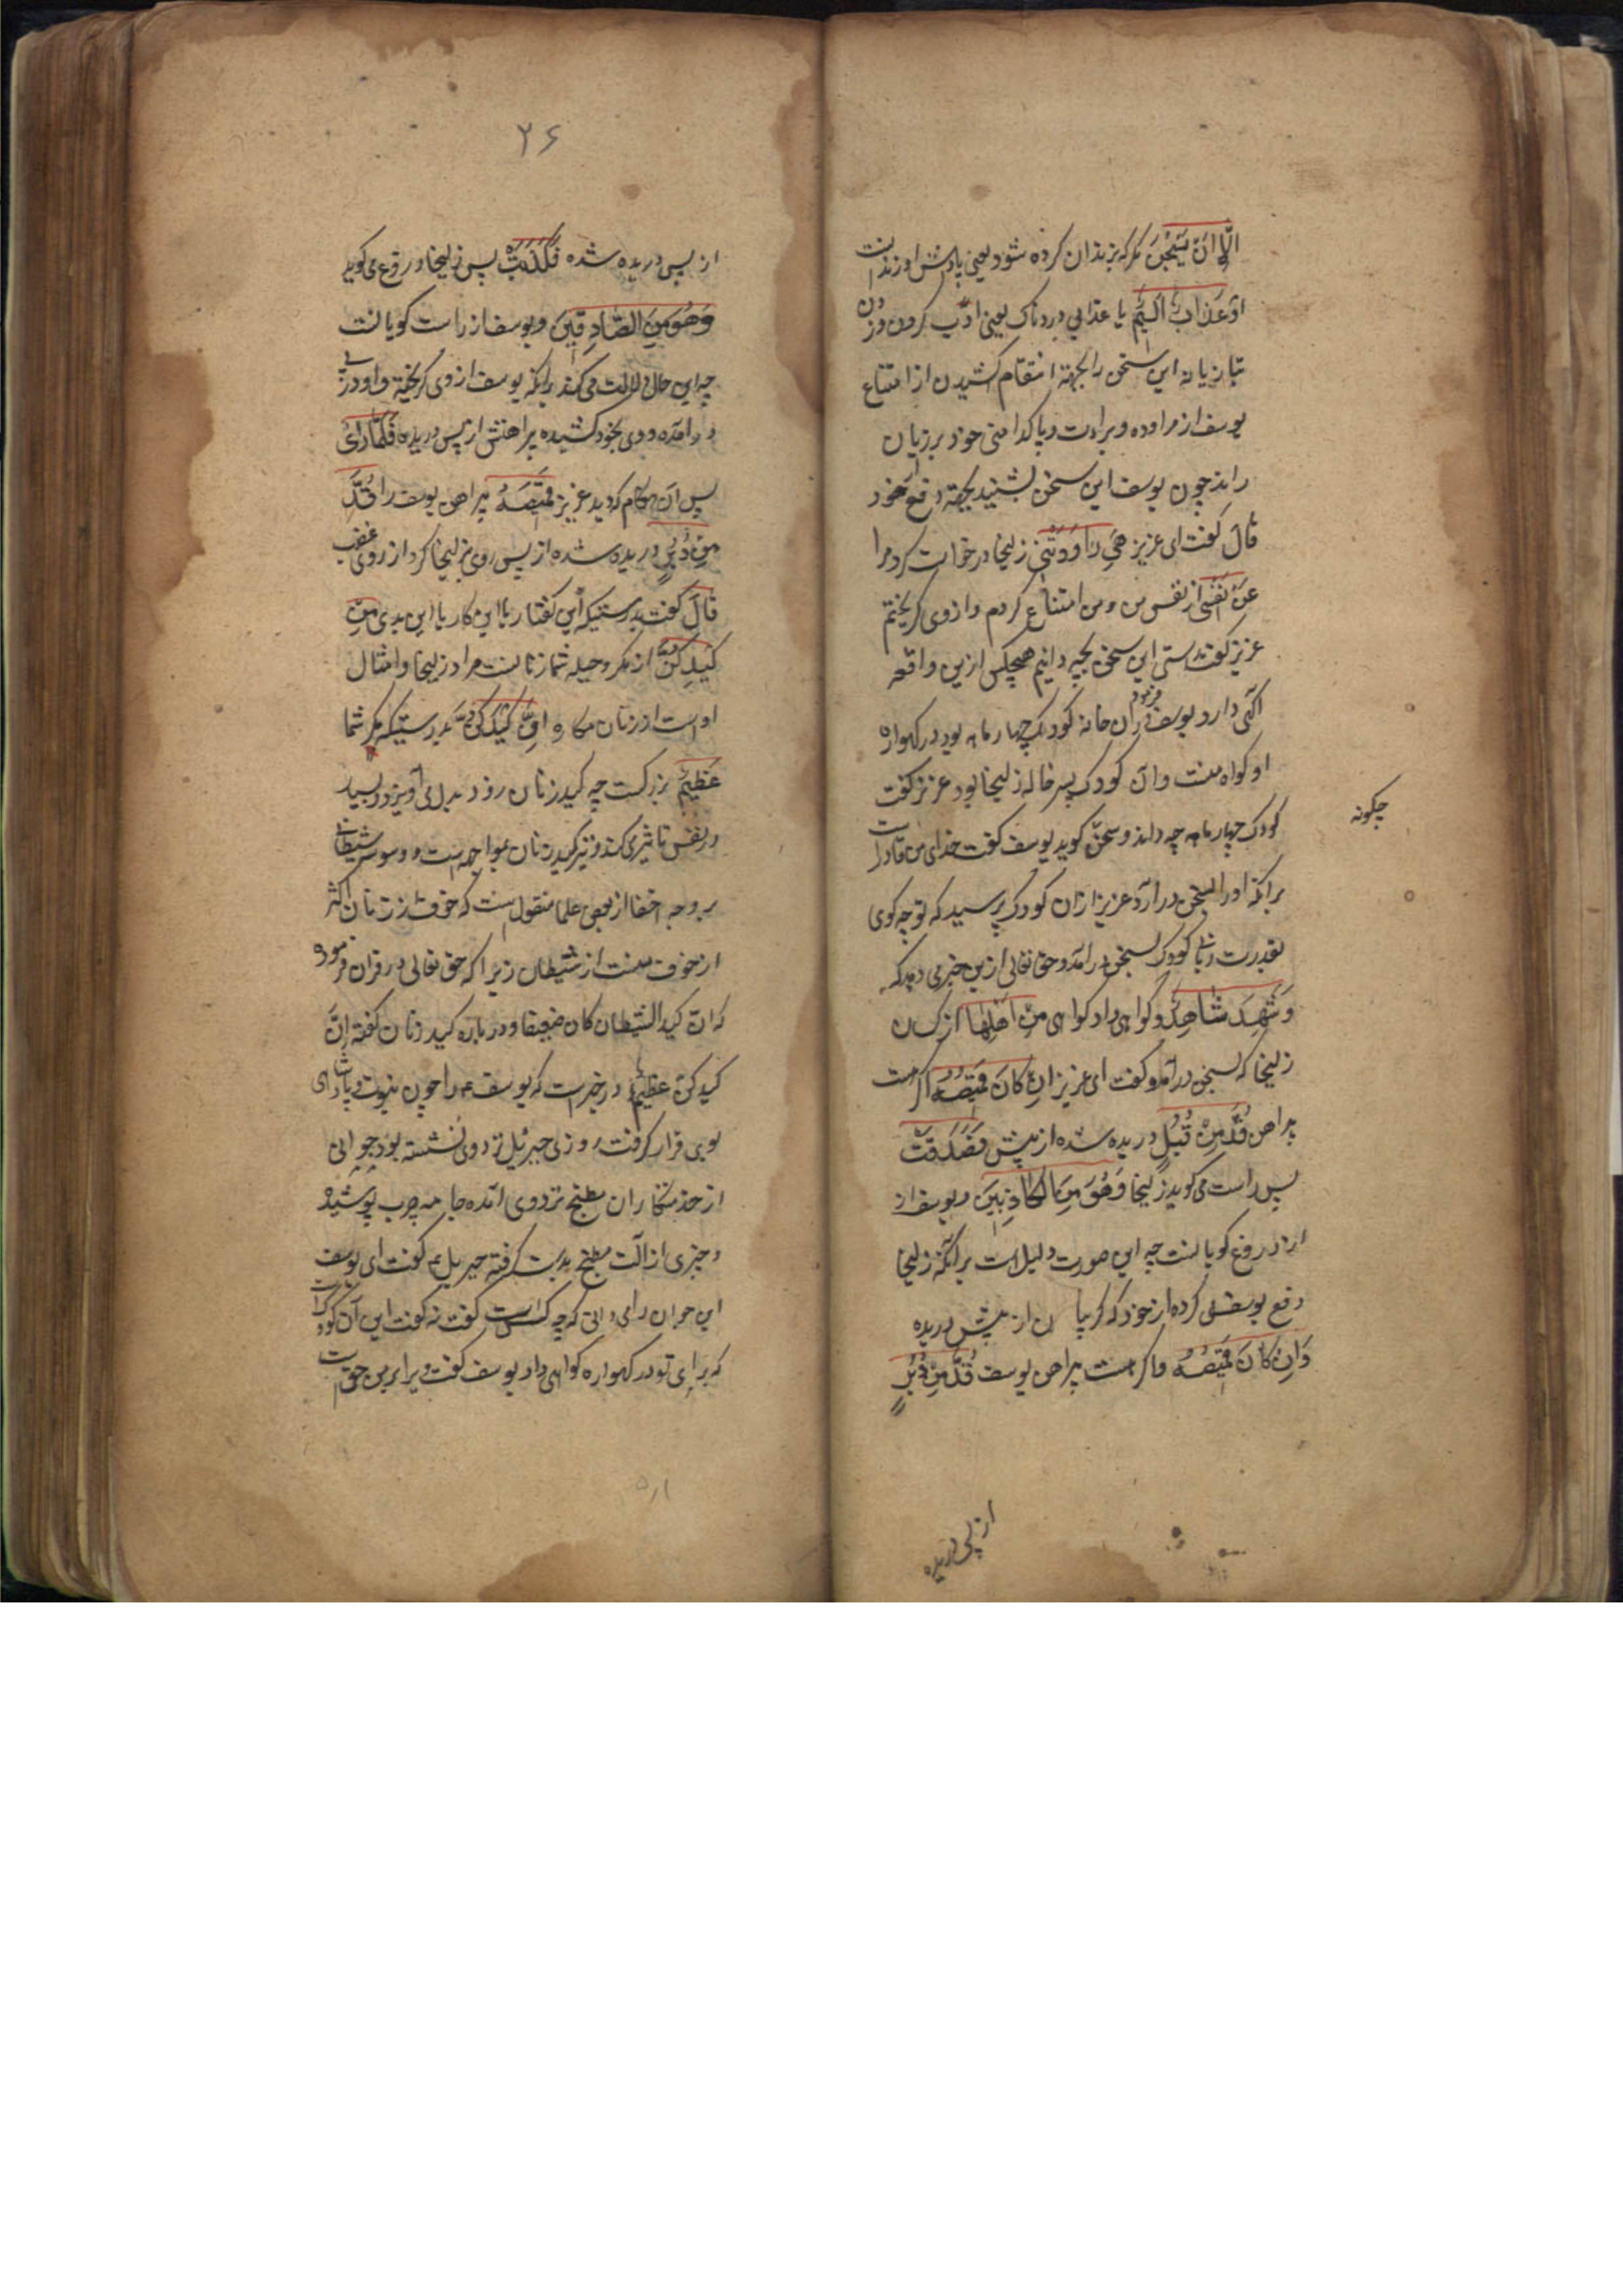 الّا ان یسجن مکر که بزندان کرده شود یعنی پاداش او زندانست
او عذاب الیم یا عذابی دردناک یعنی ادب کردن وزدن
تبازیانه این سخن را بجهة انتقام کشیدن از امتناع
یوسف از مراوده و براءت و پاکدامنی خود بر زبان
راند چون یوسف این سخن بشنید بجهة دفع از خود
قال کفت ای عزیز هی راودتنی زلیخا درخواست کرد مرا
عن نفسی از نفس من ومن امتناع کردم و از وی کریختم
عزیز کفت راستی این سخن بچه دانیم هیچکس ازین واقعه
آکهی دارد یوسف فرمود دران خانه کودک چهار ماهه بود در کهواره
او کواه منست و آن کودک پسر خاله زلیخا بود عزیز کفت
کودک چهار ماهه چه داند و سخن چکونه کوید یوسف کفت خدای من قادرست
برانکه او را بسخن در آرد عزیز ازان کودک پرسید که تو چه کوی
بقدرت ربانی کودک بسخن درآمد و حق تعالی ازین خبر می دهد که
وشهد شاهد وکواهی داد کواهی من اهلها از کسان
زلیخا که بسخن درآمد و کفت ای عزیز ان کان قمیصه اکر هست
پیراهن قد من قبل دریده شده از پیش فصدقت
پس راست می کوید زلیخا وهو من الکاذبین و یوسف از
از دروغ کویانست چه این صورت دلیل است برآنکه زلیخا
دفع یوسف می کرده از خود که کریبان از پیش دریده
وان کان قمیصه و اکر هست پیراهن یوسف قد من دبر
از پس دریده
۲۶
از پس دریده شده فکذبت پس زلیخا دروغ می کوید
وهو من الصادقین و یوسف از راست کویانست
چه این حال دلالت می کند برانکه یوسف از وی کریخته و او در پی
درامده و وی بخود کشیده پیراهنش از پس دریده فلما رای
پس آن هنکام که دید عزیز قمیصه پیراهن یوسف را قد
من دبر دریده شده از پس روی بزلیخا کرد از روی غضب
قال کفت بدرستیکه این کفتار یا این کار یا این بدی من
کیدکن از مکر و حیله شما زنانست مراد زلیخا و امثال
اوست از زنان مکاره ان کیدکن بدرستیکه مکر شما
عظیم بزرکست چه کید زنان زود بدل می آویزد و بسیار
در نفس تاثیر می کند و نیز کید زنان بمواجهه است و وسوسه شیطانی
بر وجه اخفا از بعضی علما منقولست که خوف من از زنان اکثر
از خوف منست از شیطان زیرا که حق تعالی در قران فرموده
که ان کید الشیطان کان ضعیفا و درباره کید زنان کفته ان
کیدکن عظیم در خبرست که یوسف ع را چون نبوت و پادشاهی
بوی قرار کرفت روزی جبرئیل نزد وی نشسته بود جوانی
از خدمتکاران مطبخ نزد وی آمده جامه چرب پوشیده
و چیزی از آلت مطبخ بدست کرفته جبریل ع کفت ای یوسف
این جوان را می دانی که چه کس است کفت نه کفت این آن کودکست
که برای تو در کهواره کواهی داد یوسف کفت ویرا بر من حق است